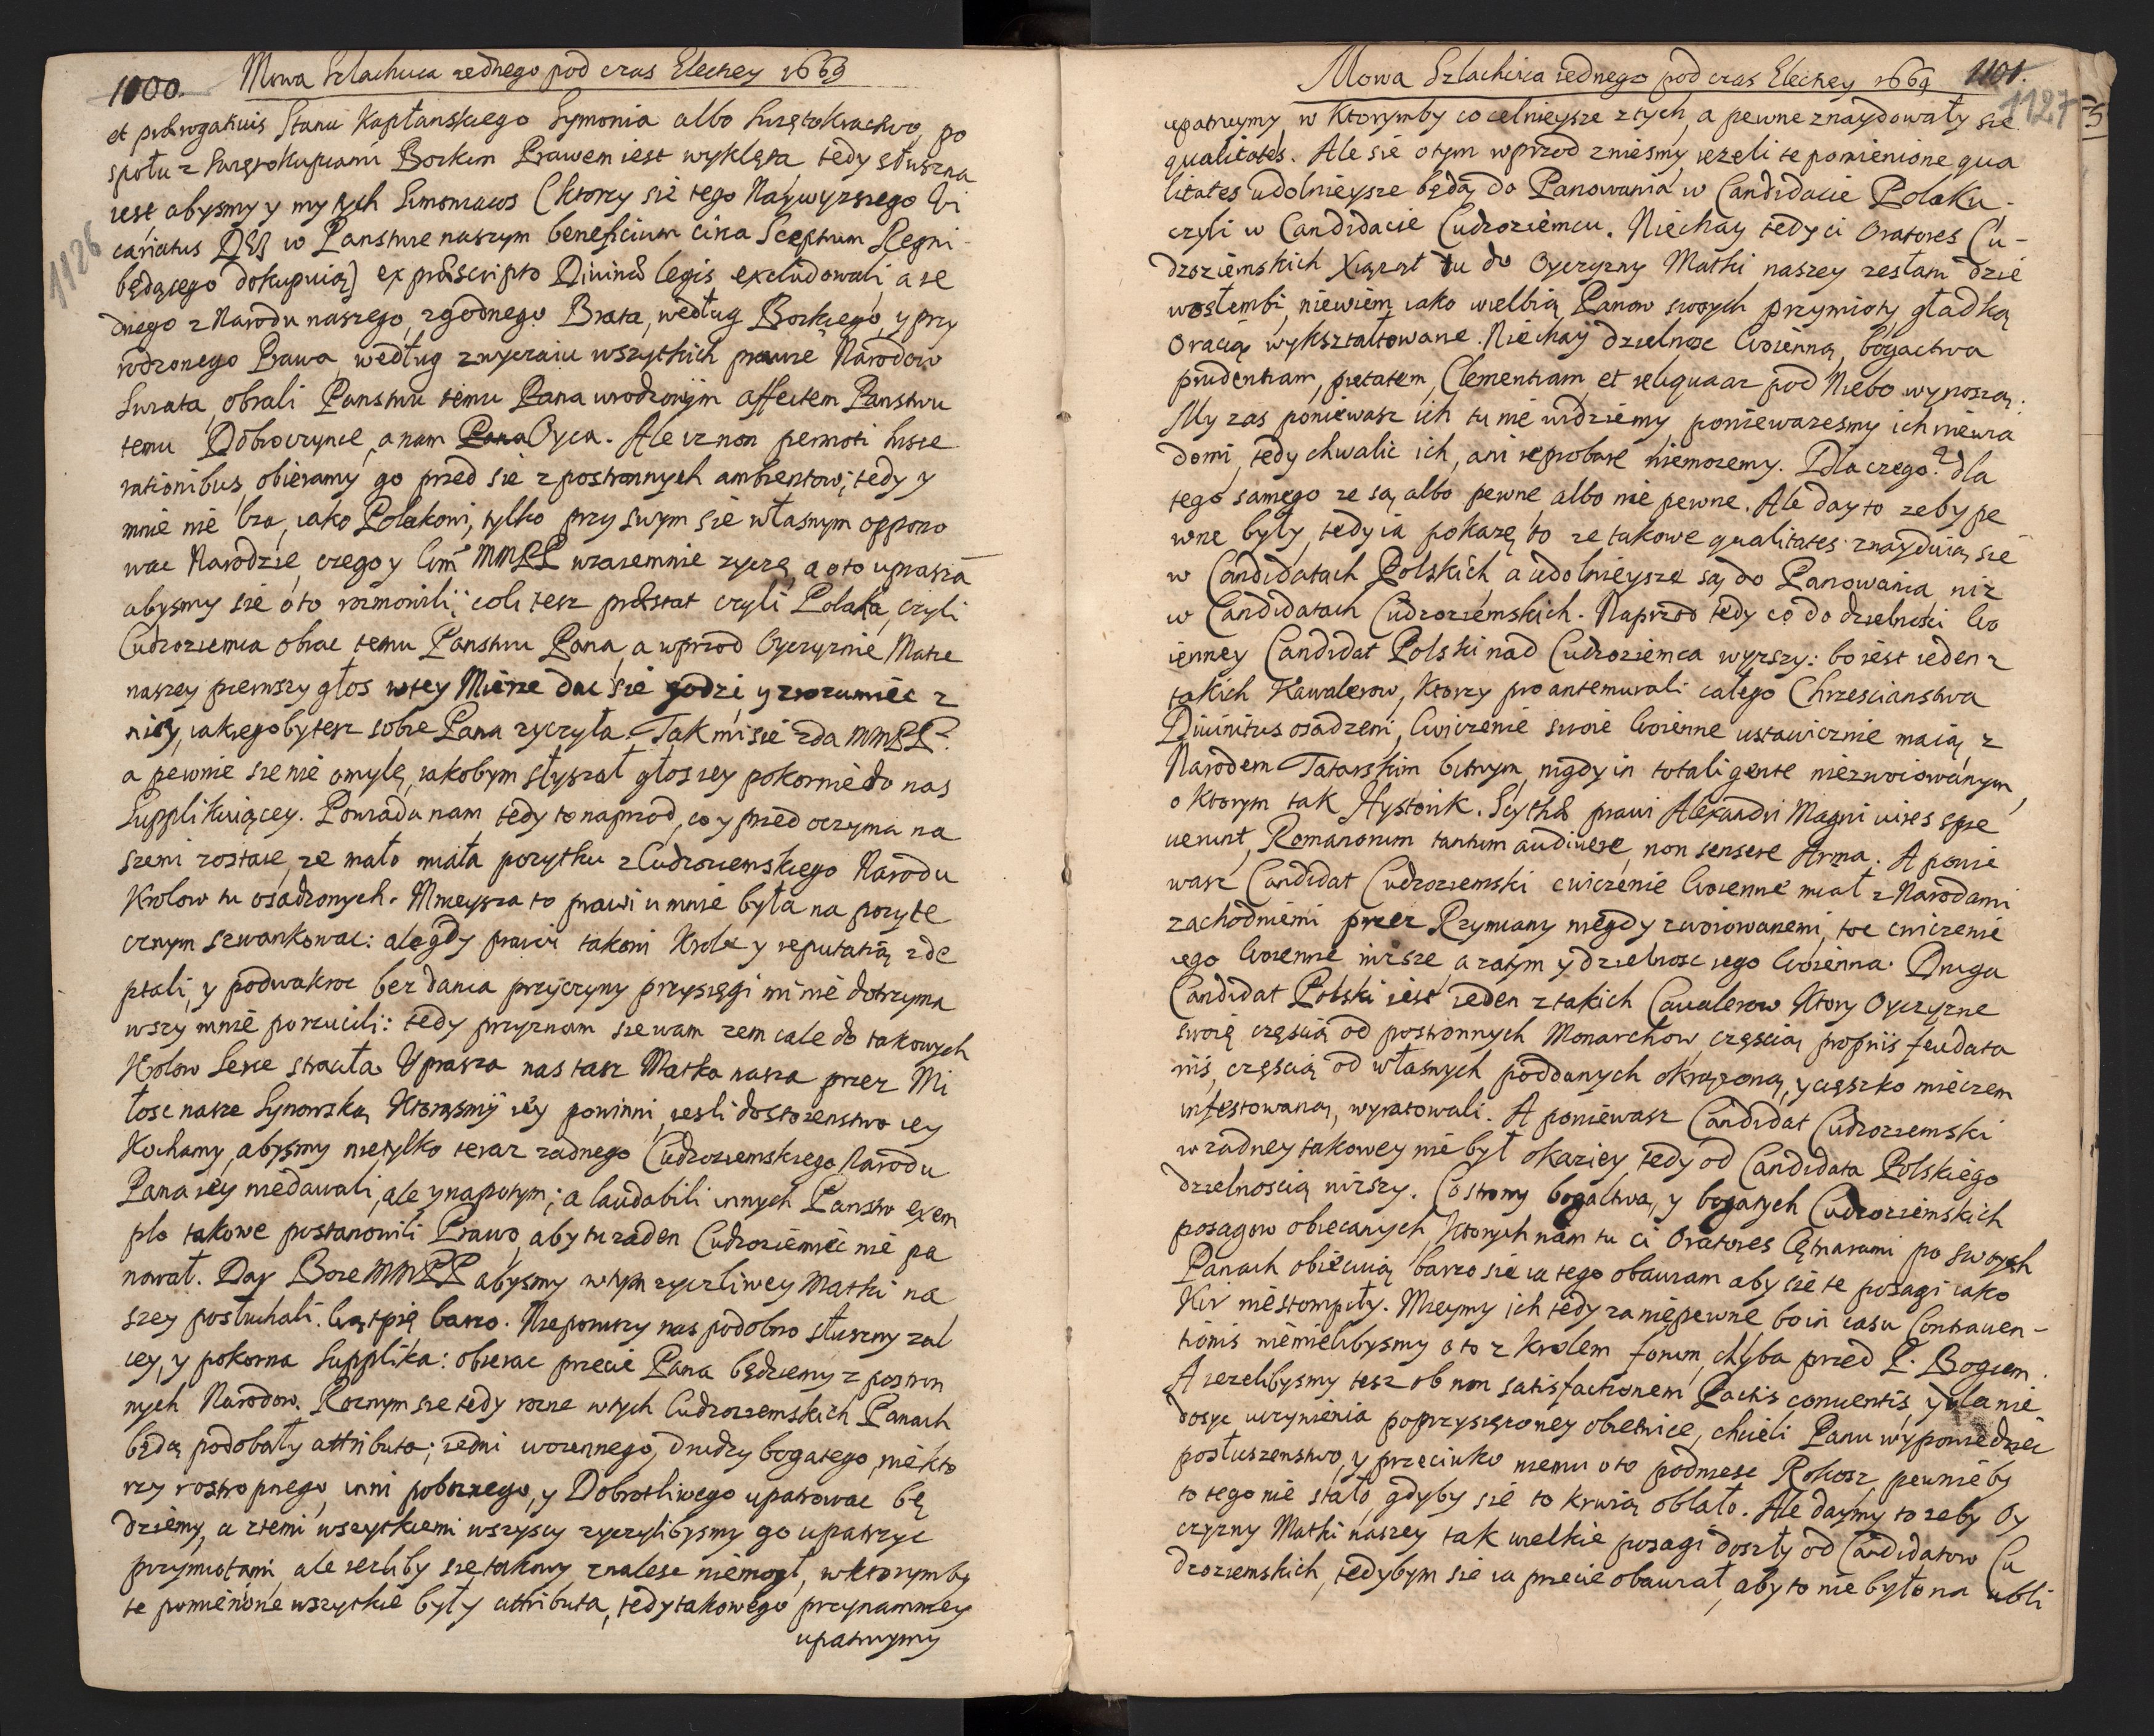 1000. Mowa Szlachcica iednego pod czas Elekcyey 1669
et prærogatiuis Stanu Kapłanskiego Symonia albo Swiętokractwo, po
społu z Swiętokupcami Boskim Prawem iest wyklęta, tedy słuszna
iest abysmy y my tych Simoniacos (ktorzy sie tego Naywyzszego Vi
1126
cariatus DEI w Panstwie naszym beneficium circa Sceptrum Regni
będącego dokupuią) ex præscripto Diuinæ legis excludowali, a ie
dnego z Narodu naszego, zgodnego Brata, według Boskiego, y przy
rodzonego Prawa, według zwyczaiu wszytkich prawie Narodow
Swiata, obrali Panstwu temu Pana urodzonym affectem Panstwu
temu Dobroczynce, a nam Pana Oyca. Ale iz non permoti hisce
rationibus, obieramy go przed sie z postronnych ambientow; tedy y
mnie nie lza, iako Polakowi, tylko przy swym sie własnym oppono
wac Narodzie, czego y Wm MMPP wzaiemnie zyczę, a oto uprasza
abysmy sie o to rozmowili; coli tesz præstat czyli Polaka, czyli
Cudzoziemca obrac temu Panstwu Pana, a wprzod Oyczyznie Matce
naszey pierwszy głos w tey Mierze dac sie godzi, y zrozumiec z
niey, iakiegoby tesz sobie Pana zyczyła. Tak mi sie zda MMPP.
a pewnie sie nie omylę, iakobym słyszał głos iey pokornie do nas
Supplikuiącey. Powiada nam tedy to naprzod, co y przed oczyma na
szemi zostaie, ze mało miała pozytku z Cudzoziemskiego Narodu
Krolow tu osadzonych. Mnieysza to prawi u mnie była na pozyte
cznym szwankowac: ale gdy prawi takowi Krole y reputatią zde
ptali, y podwakroc bez dania przyczyny przysięgi mi nie dotrzyma
wszy mnie porzucili: tedy przyznam sie wam zem cale do takowych
Krolow Serce straciła. Uprasza nas tasz Matka nasza przez Mi
łosc nasze Synowską Ktorąsmy iey powinni, iesli dostoienstwo iey
Kochamy, abysmy nietylko teraz zadnego Cudzoziemskiego Narodu
Pana iey niedawali, ale y napotym; a laudabili innych Panstw exem
plo takowe postanowili Prawo, aby tu zaden Cudzoziemiec nie pa
nował. Day Boze MMPP abysmy w tym zyczliwey Matki na
szey posłuchali. Wątpię barzo. Nieporuszy nas podobno słuszny zal
iey, y pokorna Supplika: obierac przecie Pana będziemy z postron
nych Narodow. Roznym sie tedy rozne w tych Cudzoziemskich Panach
będą podobały attributa; iedni woiennego, drudzy bogatego, niekto
rzy rostropnego, inni poboznego, y Dobrotliwego upatrowac bę
dziemy, a ztemi wszytkiemi wszyscy zyczylibysmy go upatrzyc
przymiotami, ale iezliby sie takowy znalesc niemogł, w ktorymby
te pomienione wszytkie były attributa, tedy takowego przynammiey
upatruymy
Mowa Szlachcica iednego pod czas Elekcyey 1669 1101.
1127
upatruymy, w Ktorymby co celnieysze z tych, a pewne znaydowały sie
qualitates. Ale sie o tym wprzod zniesmy iezeli te pomienione qua
litates udolnieysze będą do Panowania w Candidacie Polaku.
czyli w Candidacie Cudzoziemcu. Niechay tedy ci Oratores Cu-
dzoziemskich Xiąząt tu do Oyczyzny Matki naszey zesłani dzie
wosłembi, niewiem iako wielbią Panow swoych przymioty gładką
Oracią wykształtowane. Niechay dzielnosc Woienną, bogactwa
prudentiam, pietatem, Clementiam et reliqua az pod Niebo wynoszą:
My zas poniewasz ich tu nie widziemy, poniewazesmy ich niewia
domi, tedy chwalic ich, ani reprobare niemozemy. Dla czego? dla
tego samego ze są albo pewne, albo nie pewne. Ale day to zeby pe
wne były, tedy ia pokazę to ze takowe qualitates znayduią sie
w Candidatach Polskich a udolnieysze są do Panowania niz
w Candidatach Cudzoziemskich. Naprzod tedy co do dzielnosci Wo
ienney Candidat Polski nad Cudzoziemca wyzszy: bo iest ieden z
takich Kawalerow, Ktorzy pro antemurali całego Chrzescianstwa
Diuinitus osadzeni, cwiczenie swoie Woienne ustawicznie maią z
Narodem Tatarskim bitnym, nigdy in totali gente niezwoiowanym,
o Ktorym tak Hystorik. Scythæ prawi Alexandri Magni vires spre
uerunt, Romanorum tantum audiuere, non sensere Arma. A ponie
wasz Candidat Cudzoziemski cwiczenie Woienne miał z Narodami
zachodniemi przez Rzymiany niegdy zwoiowanemi, toc cwiczenie
iego Woienne nizsze, a zatym y dzielnosc iego Woienna. Druga
Candidat Polski iest ieden z takich Caualerow Ktory Oyczyznę
swoię częscią od postronnych Monarchow, częscią propriis feudata
riis, częscią od własnych poddanych okrązoną, y cięszko mieczem
infestowaną, wyratowali. A poniewasz Candidat Cudzoziemski
w zadney takowey nie był okaziey tedy od Candidata Polskiego
dzielnoscią nizszy. Co strony bogactwa, y bogatych Cudzoziemskich
posagow obiecanych, Ktorych nam tu ci Oratores Cętnarami po swoych
Panach obiecuią barzo sie ia tego obawiam aby sie te posagi iako
Kir niestompiły. Mieymy ich tedy za niepewne bo in casu Contrauen-
tionis niemielibysmy o to z Krolem forum, chyba przed P. Bogiem.
A iezelibysmy tesz ob non satisfactionem Pactis conuentis, y dla nie
dosyc uczynienia poprzysięzoney obietnice, chcieli Panu wypowiedziec
posłuszenstwo, y przeciwko niemu o to podniesc Rokosz pewnieby
to tego nie stało, gdyby sie to krwią oblało. Ale daymy to zeby Oy
czyzny Matki naszey tak wielkie posagi doszły od Candidatow Cu
dzoziemskich, tedybym sie ia przecie obawiał, aby to nie było na ubli